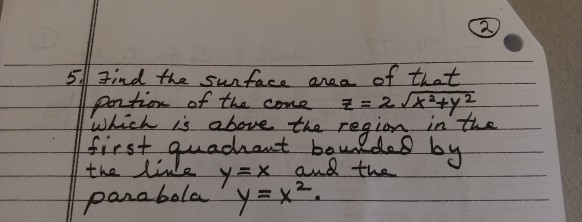 2
5. Find the surface area of that
portion of the cone z = 2 √x²+y²
which is above the region in the
first quadrant bounded by
the line y=x and the
parabola y=x².